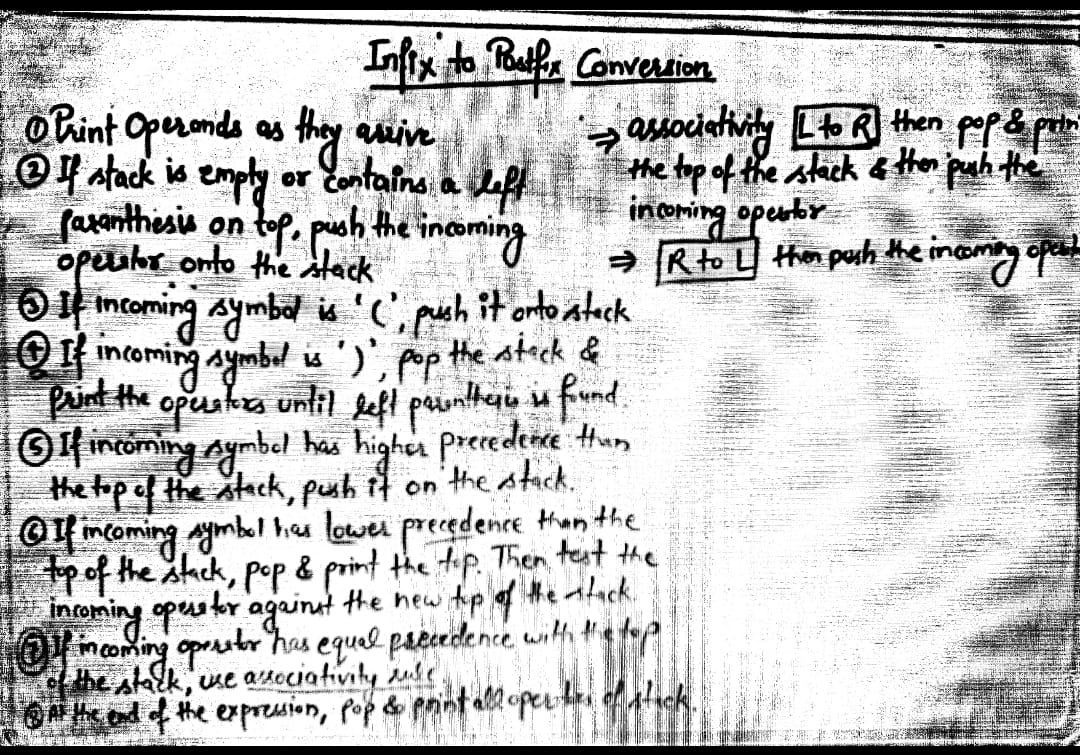 Infix to Postfix Conversion
① Print Operands as they arrive
② If stack is empty or contains a left
paranthesis on top, push the incoming
operator onto the stack
③ If incoming symbol is '(', push it onto stack
④ If incoming symbol is ')', pop the stack &
print the operators until left paranthesis is found.
⑤ If incoming symbol has higher precedence than
the top of the stack, push it on the stack.
⑥ If incoming symbol has lower precedence than the
top of the stack, pop & print the top. Then test the
incoming operator against the new top of the stack.
⑦ If incoming operator has equal precedence with the top
of the stack, use associativity rule
⑧ At the end of the expression, pop & print all operators of stack.
⇒ associativity L to R then pop & prin
the top of the stack & then push the
incoming operator
⇒ R to L then push the incoming operat